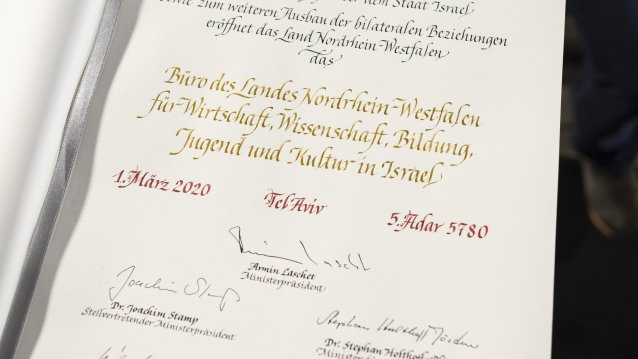 dem Staat Israel
sowie zum weiteren Ausbau der bilateralen Beziehungen
eröffnet das Land Nordrhein-Westfalen
das
Büro des Landes Nordrhein-Westfalen
für Wirtschaft, Wissenschaft, Bildung,
Jugend und Kultur in Israel
1. März 2020 Tel Aviv 5. Adar 5780
Armin Laschet
Armin Laschet
Ministerpräsident
Joachim Stamp
Dr. Joachim Stamp
Stellvertretender Ministerpräsident
Stephan
Dr. Stephan Holthoff
Minister